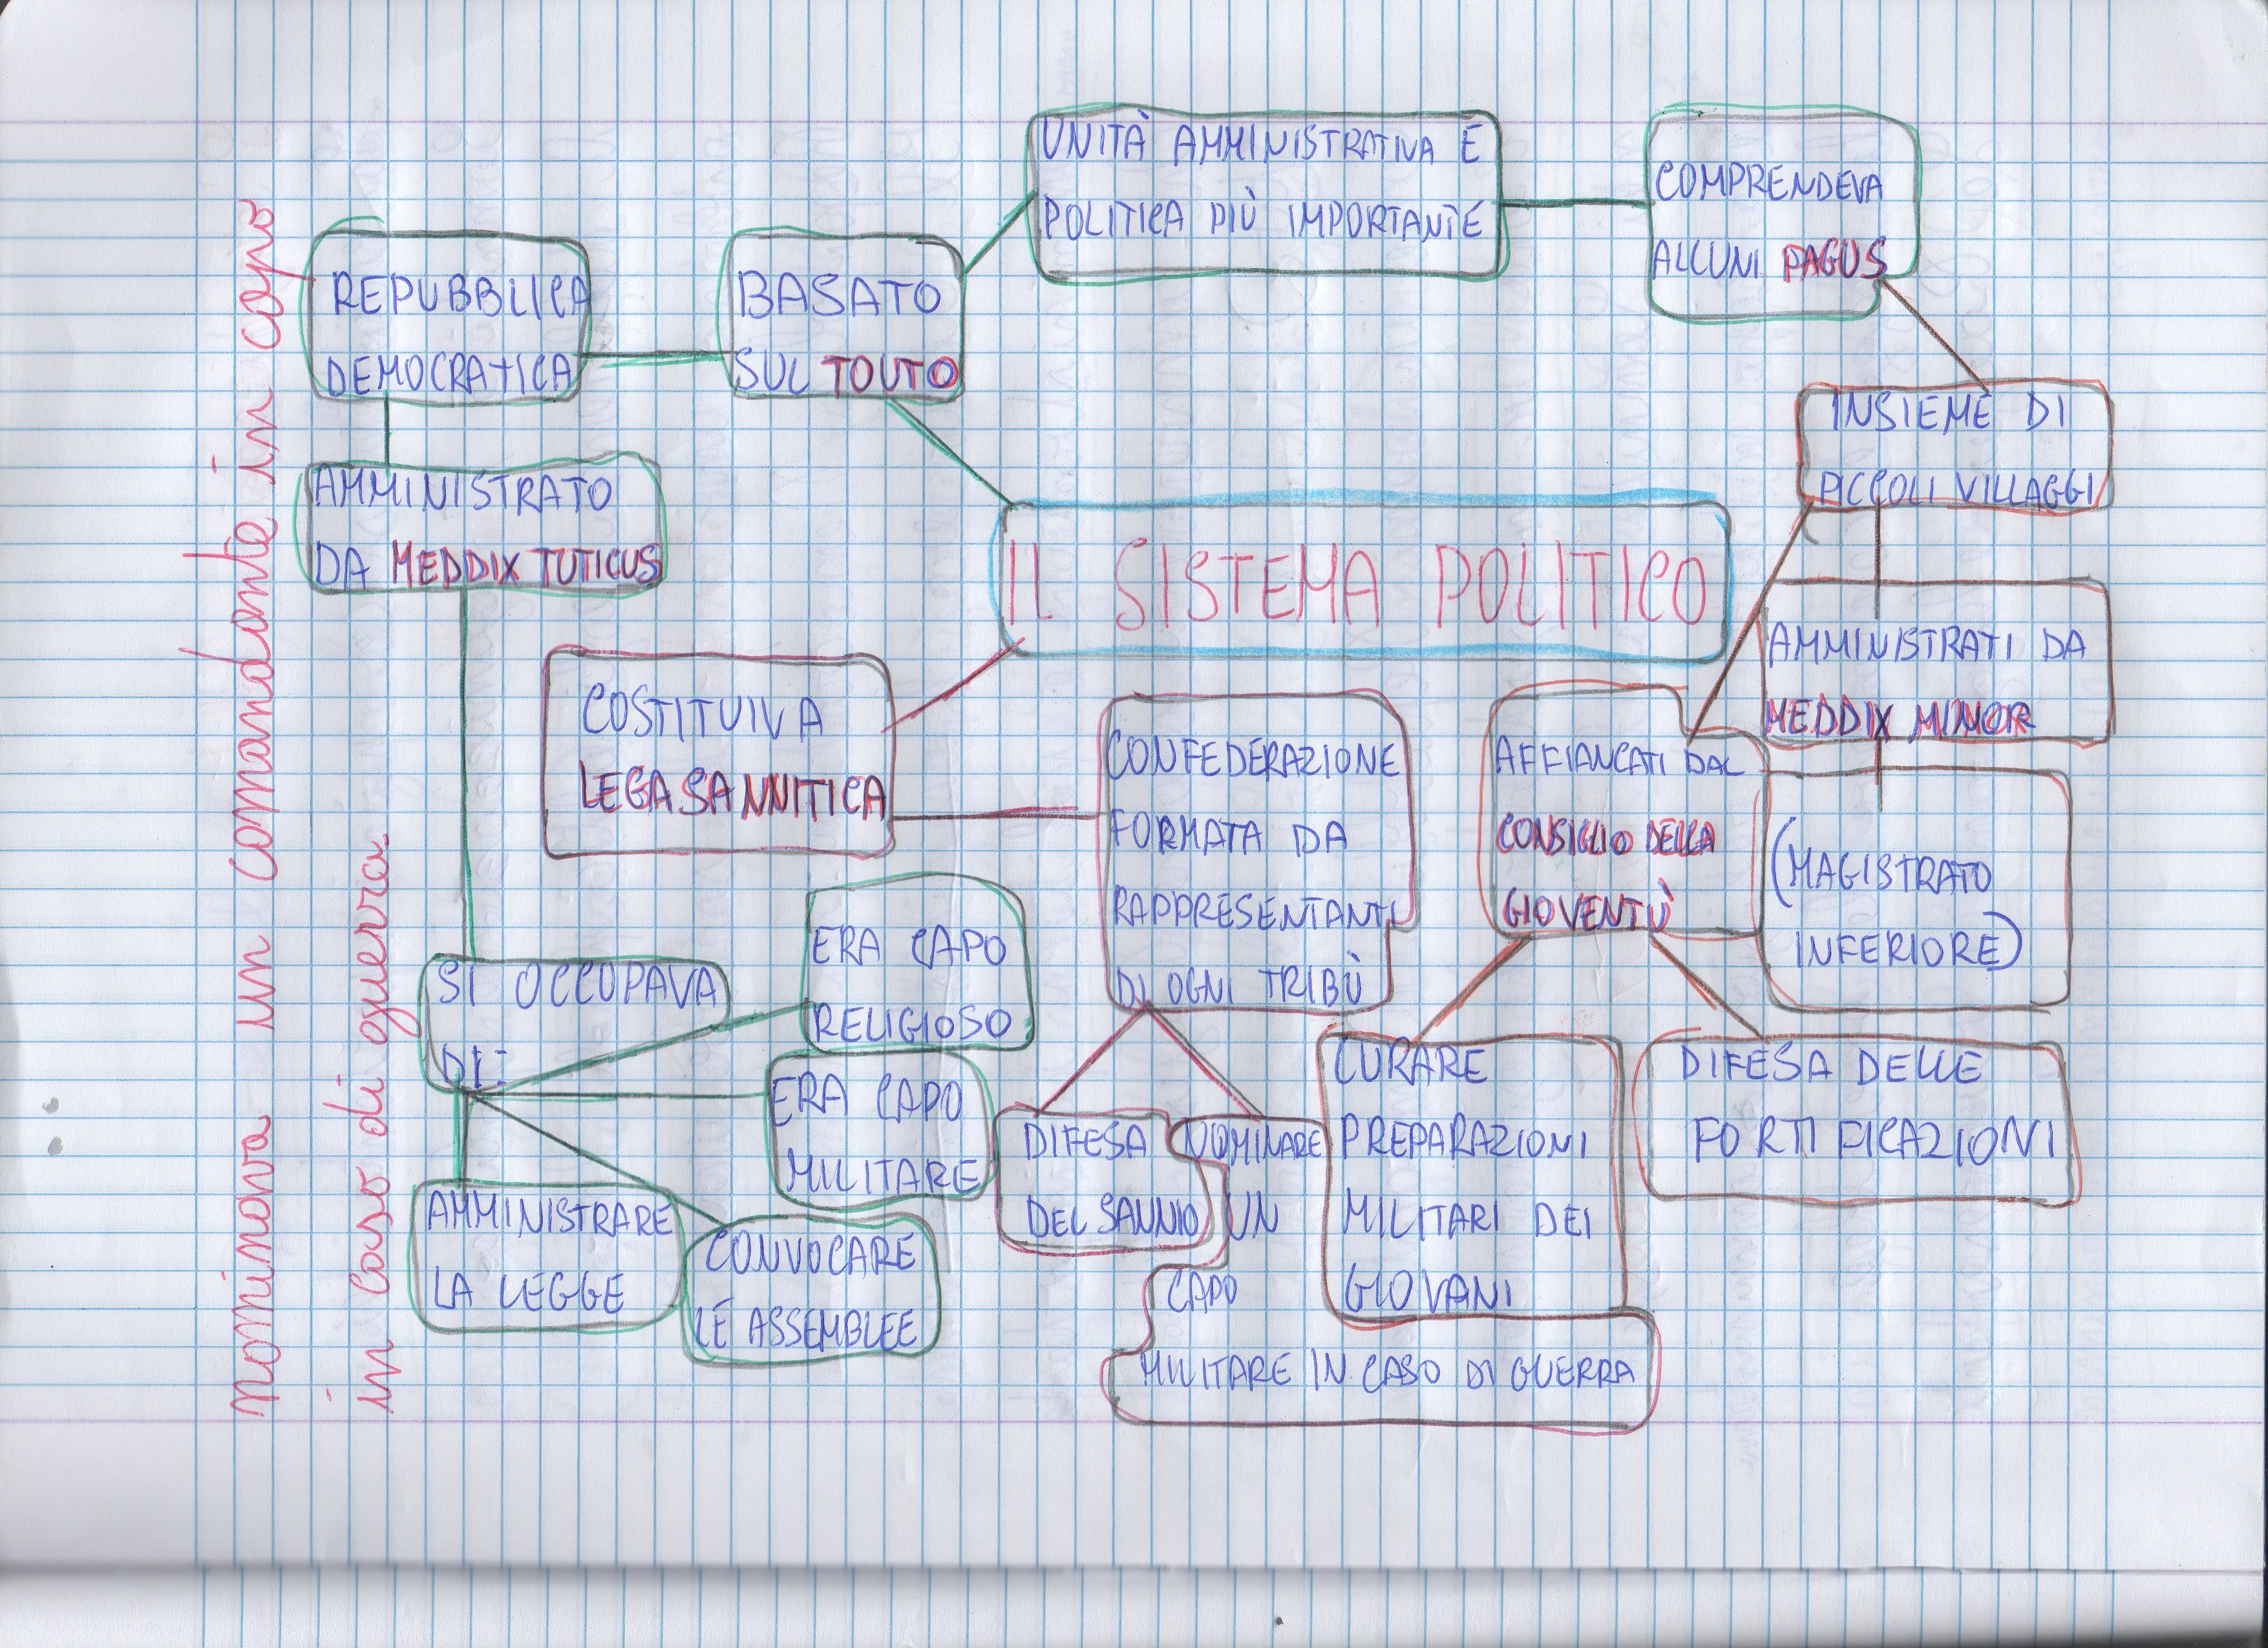 UNITÀ AMMINISTRATIVA E
POLITICA PIÙ IMPORTANTE
COMPRENDEVA
ALCUNI PAGUS
REPUBBLICA
DEMOCRATICA
BASATO
SUL TOUTO
INSIEME DI
PICCOLI VILLAGGI
AMMINISTRATO
DA MEDDIX TUTICUS
IL SISTEMA POLITICO
AMMINISTRATI DA
MEDDIX MINOR
COSTITUIVA
LEGA SANNITICA
CONFEDERAZIONE
FORMATA DA
RAPPRESENTANTI
DI OGNI TRIBÙ
AFFIANCATI DAL
CONSIGLIO DELLA
GIOVENTÙ
(MAGISTRATO
INFERIORE)
SI OCCUPAVA
DI:
ERA CAPO
RELIGIOSO
ERA CAPO
MILITARE
AMMINISTRARE
LA LEGGE
CONVOCARE
LE ASSEMBLEE
DIFESA
DEL SANNIO
NOMINARE
UN
CAPO
MILITARE IN CASO DI GUERRA
CURARE
PREPARAZIONI
MILITARI DEI
GIOVANI
DIFESA DELLE
FORTIFICAZIONI
nominava un comandante in capo
in caso di guerra.